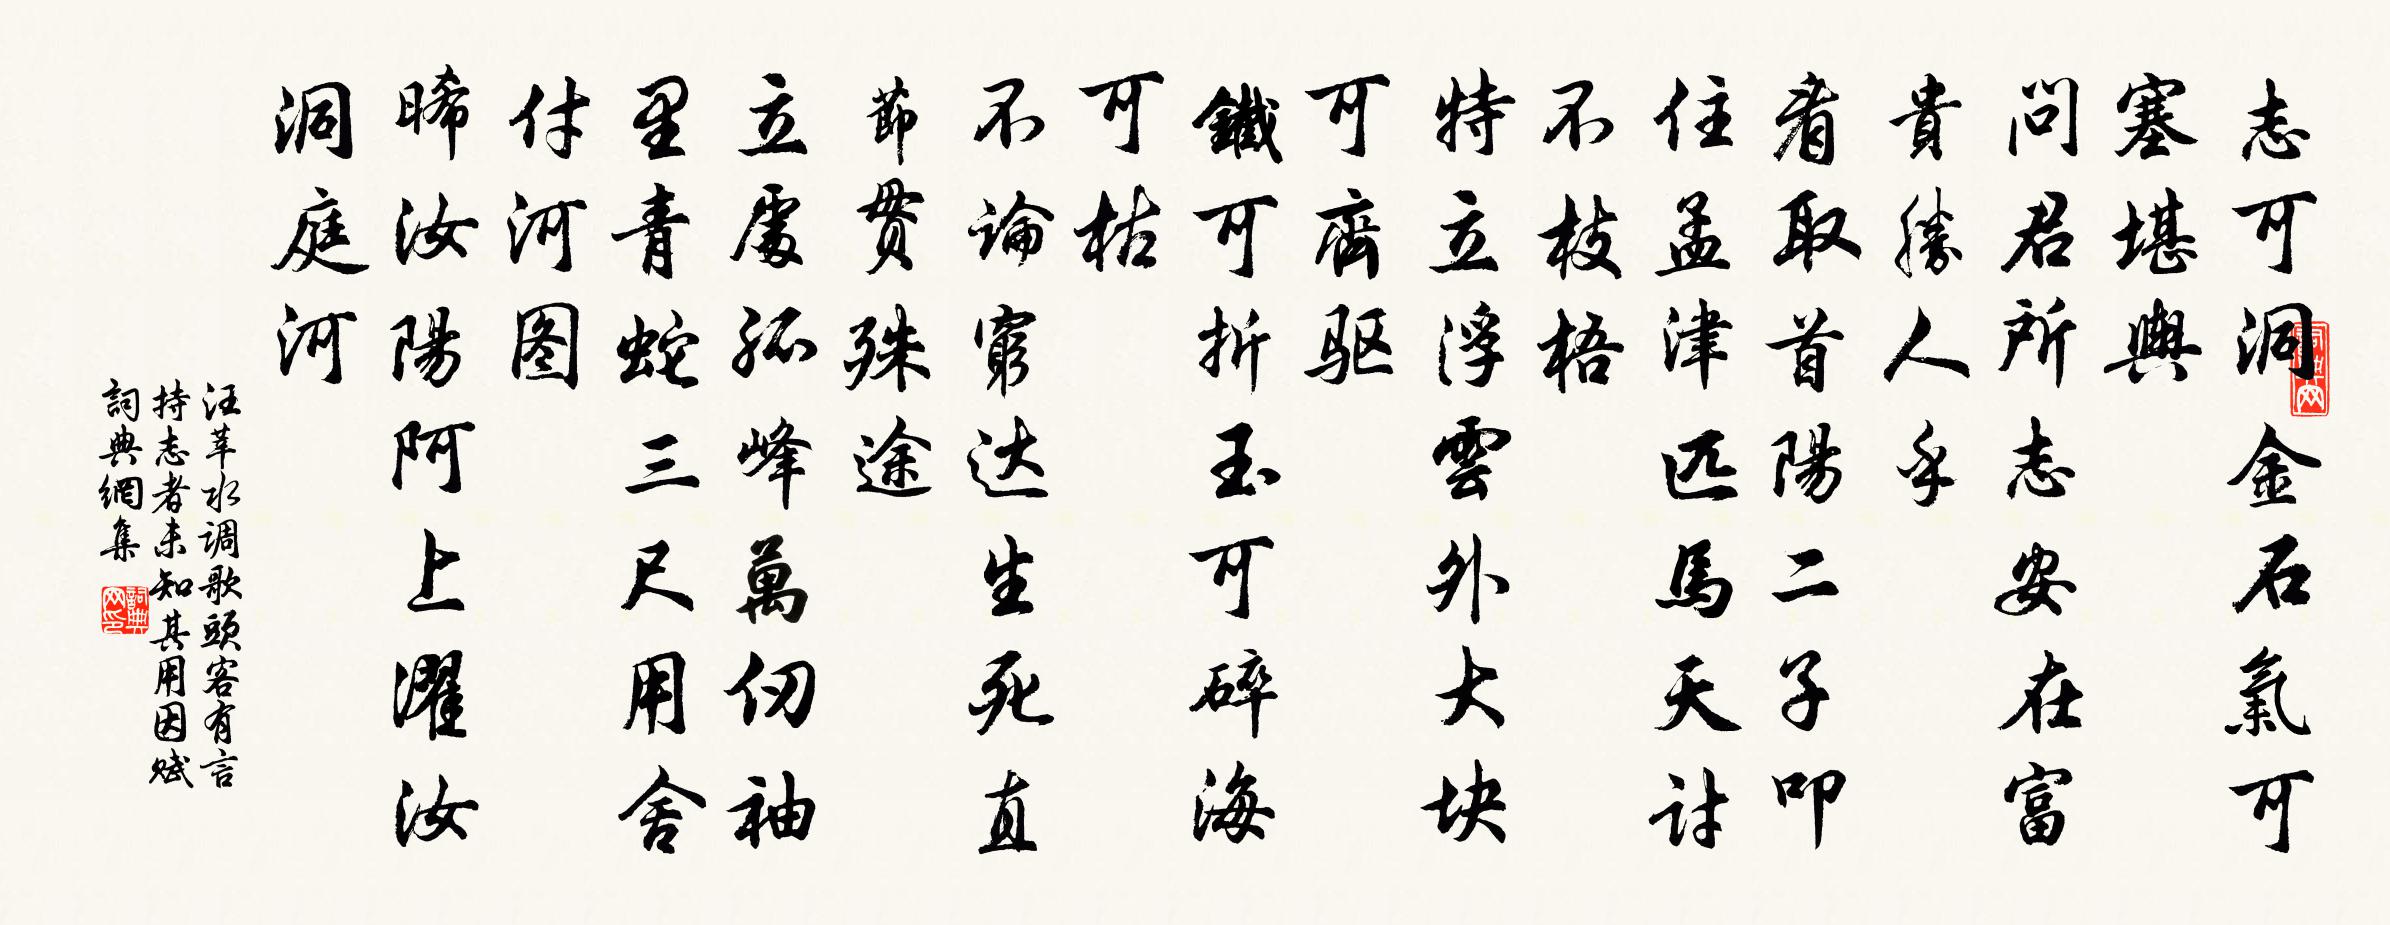 志可洞金石氣可
塞堪輿
问君所志安在富
貴勝人乎
看取首陽二子叩
住孟津匹馬天討
不枝梧
特立浮雲外大块
可齊驱
鐵可折玉可碎海
可枯
不論窮达生死直
節贯殊途
立處孤峰萬仞袖
里青蛇三尺用舍
付河图
晞汝陽阿上濯汝
洞庭河
汪莘水调歌頭客有言
持志者未知其用因赋
詞典網集
詞典网印